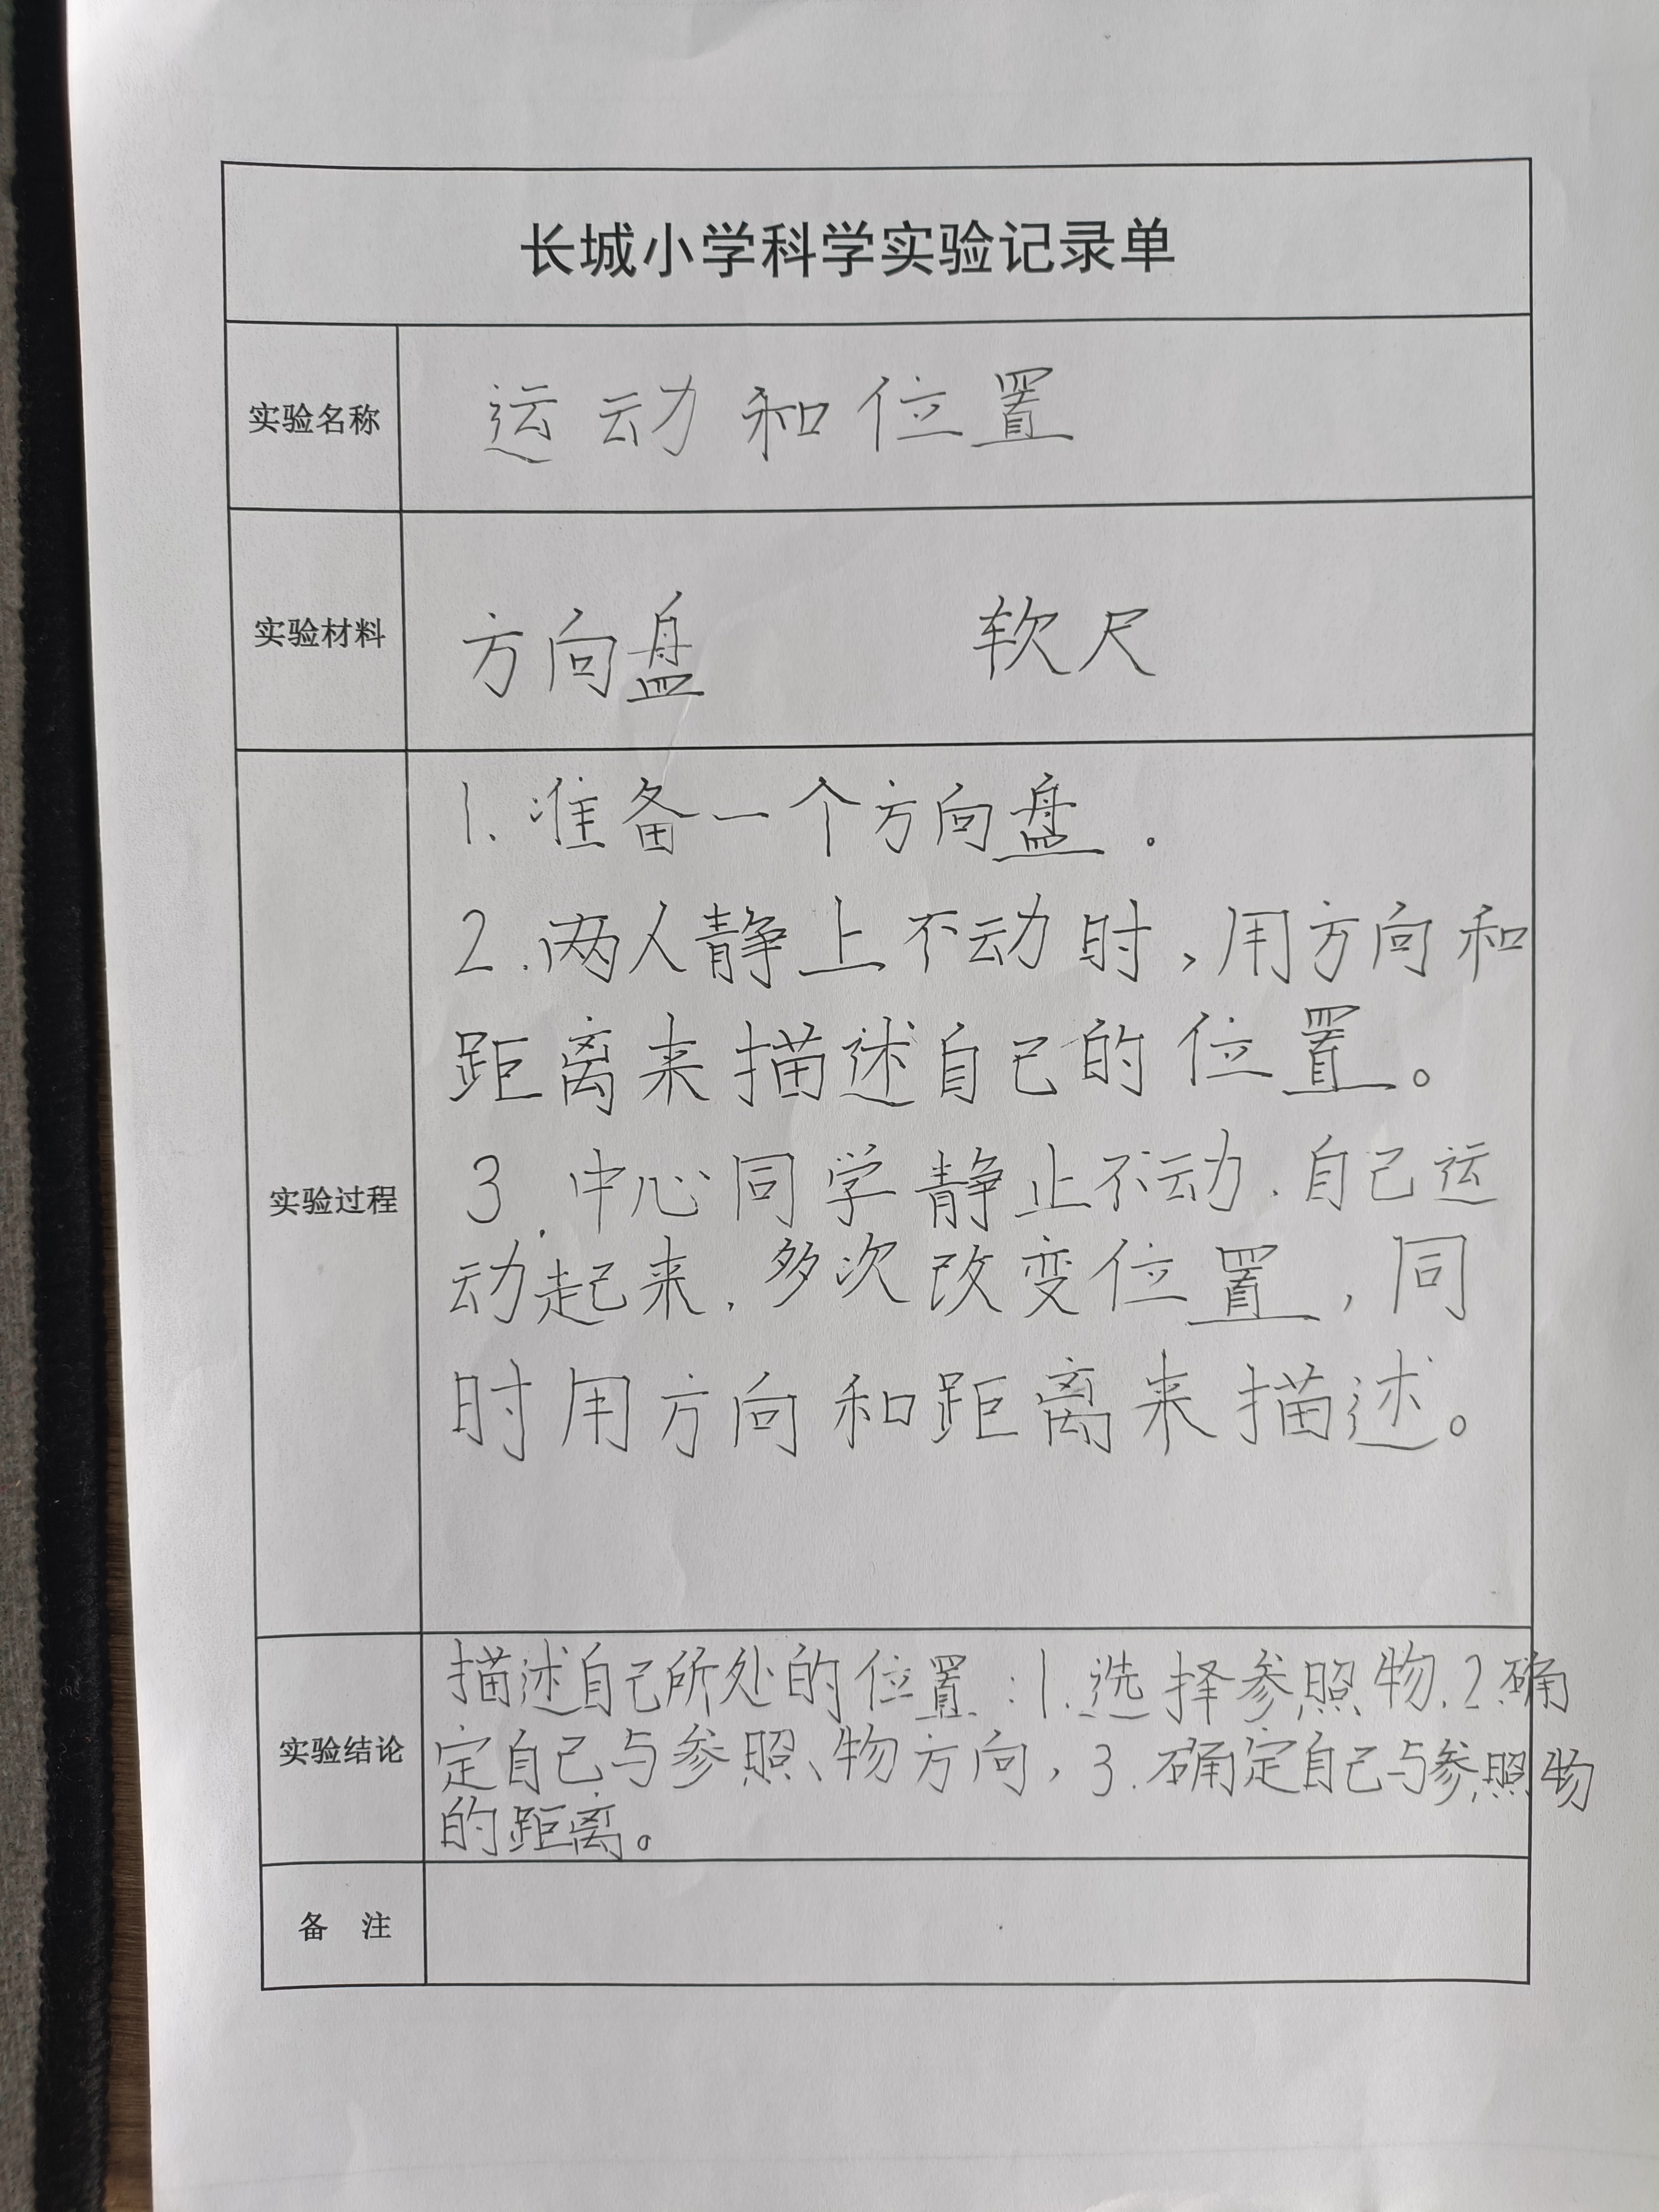 长城小学科学实验记录单
实验名称
运动和位置
实验材料
方向盘 软尺
实验过程
1. 准备一个方向盘.
2. 两人静上不动时,用方向和
距离来描述自己的位置。
3. 中心同学静止不动.自己运
动起来.多次改变位置,同
时用方向和距离来描述。
实验结论
描述自己所处的位置:1.选择参照物.2.确
定自己与参照、物方向,3.确定自己与参照物
的距离。
备 注